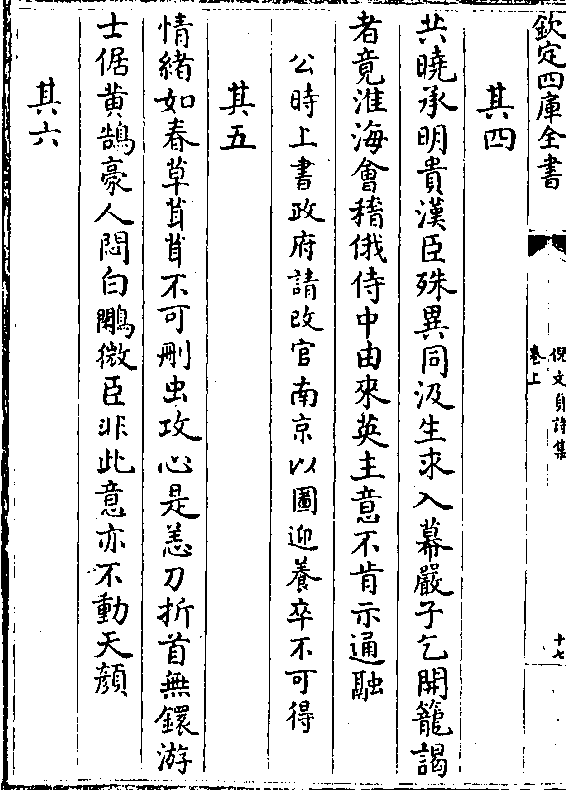 欽定四庫全書
倪文貞詩集
卷上
十七
其四
共曉承明貴漢臣殊異同汲生求入幕嚴子乞開籠謁
者竟淮海會稽俄侍中由來英主意不肯示通融
公時上書政府請改官南京以圖迎養卒不可得
其五
情緒如春草茸茸不可刪虫攻心是恙刀折首無鐶游
士倨黄鵠豪人悶白鷴微臣非此意亦不動天顔
其六